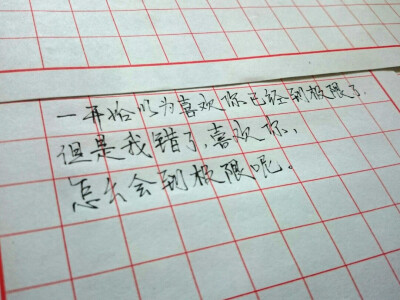 一开始以为喜欢你已经到极限了.
但是我错了,喜欢你,
怎么会到极限呢。